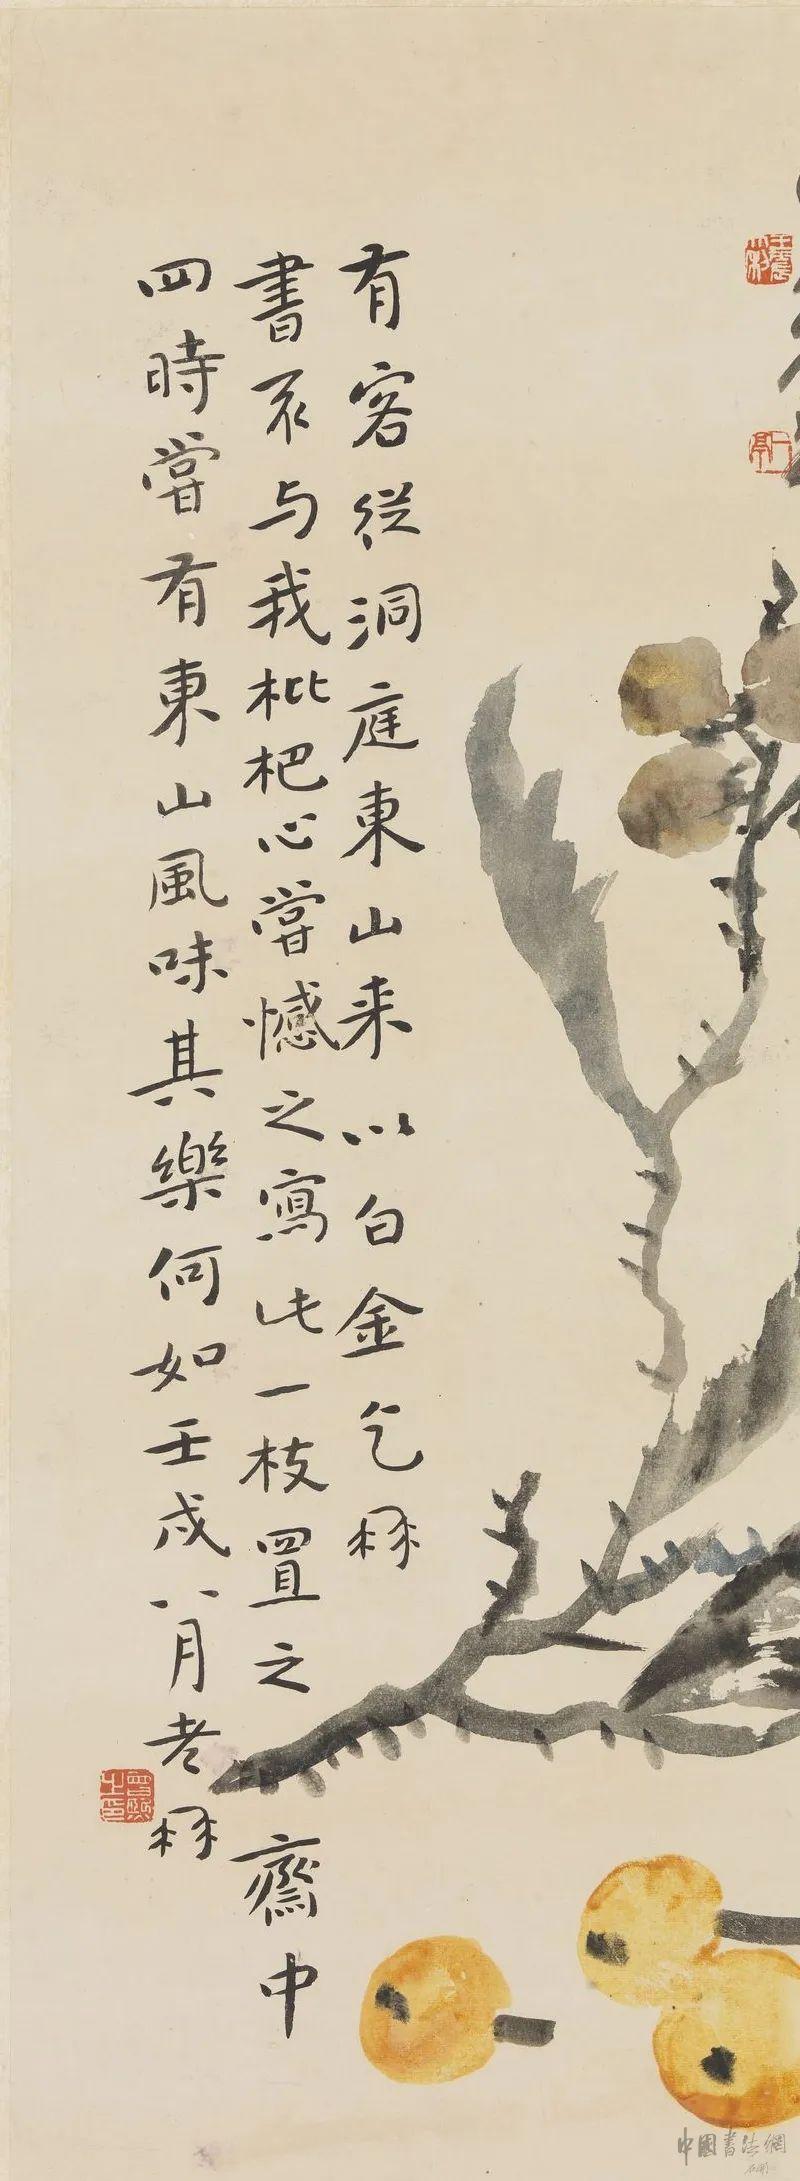 有客從洞庭東山来以白金乞髯
書不与我枇杷心嘗憾之寫此一枝置之齋中
四時嘗有東山風味其樂何如壬戌八月老髯
曾熙之印
一亭
中國書法網